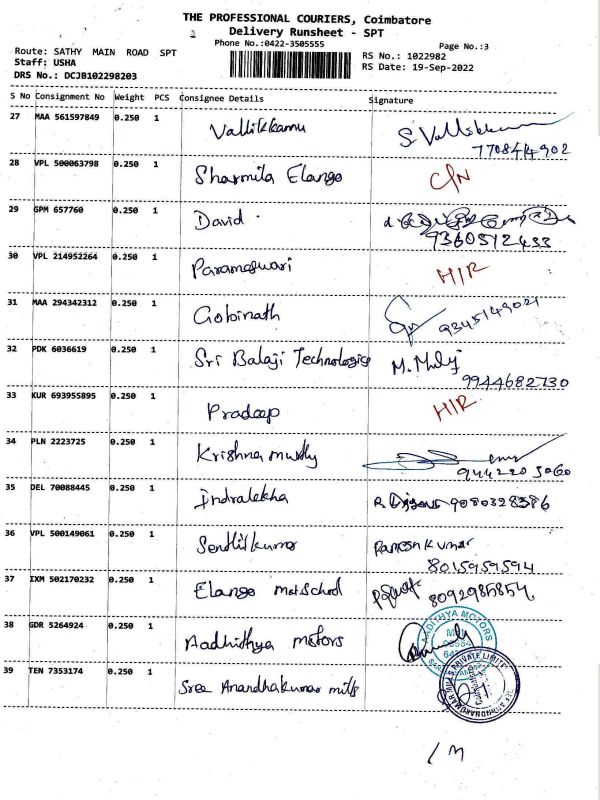 THE PROFESSIONAL COURIERS, Coimbatore
Delivery Runsheet - SPT
Phone No.:0422-3505555
Page No.:3
Route: SATHY MAIN ROAD SPT
Staff: USHA
DRS No.: DCJB102298203
RS No.: 1022982
RS Date: 19-Sep-2022
S No Consignment No Weight PCS Consignee Details Signature
27 MAA 561597849 0.250 1 Vallikkannu
7708414902
28 VPL 500063798 0.250 1 Sharmila Elango C/N
29 GPM 657760 0.250 1 David
9360512433
30 VPL 214952264 0.250 1 Parameswari H/R
31 MAA 294342312 0.250 1 Gobinath 9345149021
32 PDK 6036619 0.250 1 Sri Balaji Technologies
9944682730
33 KUR 693955895 0.250 1 Pradeep H/R
34 PLN 2223725 0.250 1 Krishna murthy
9442203060
35 DEL 70088445 0.250 1 Indralekha 9080328386
36 VPL 500149061 0.250 1 Senthilkumar Ramesh Kumar
8015959594
37 IXM 502170232 0.250 1 Elango mat School 8092985854
38 GDR 5264924 0.250 1 Aadhithya motors
AADITHYA MOTORS
39 TEN 7353174 0.250 1 Sree Anandhakumar mills